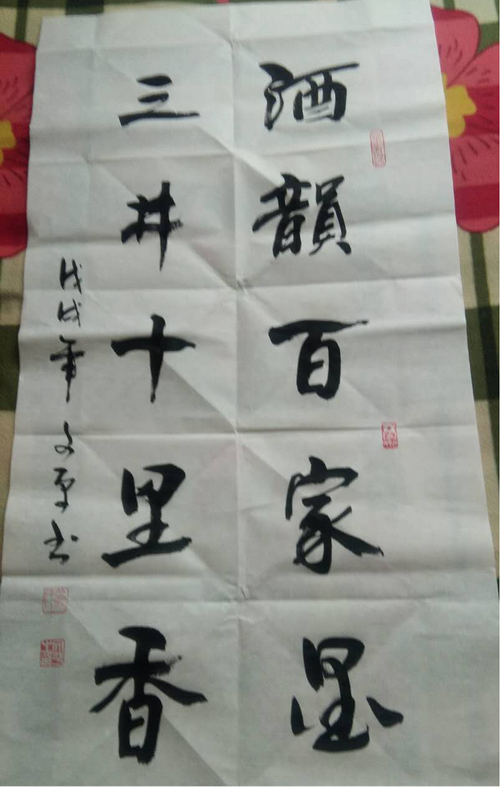 酒韻百家墨
三井十里香
戊戌年文平书